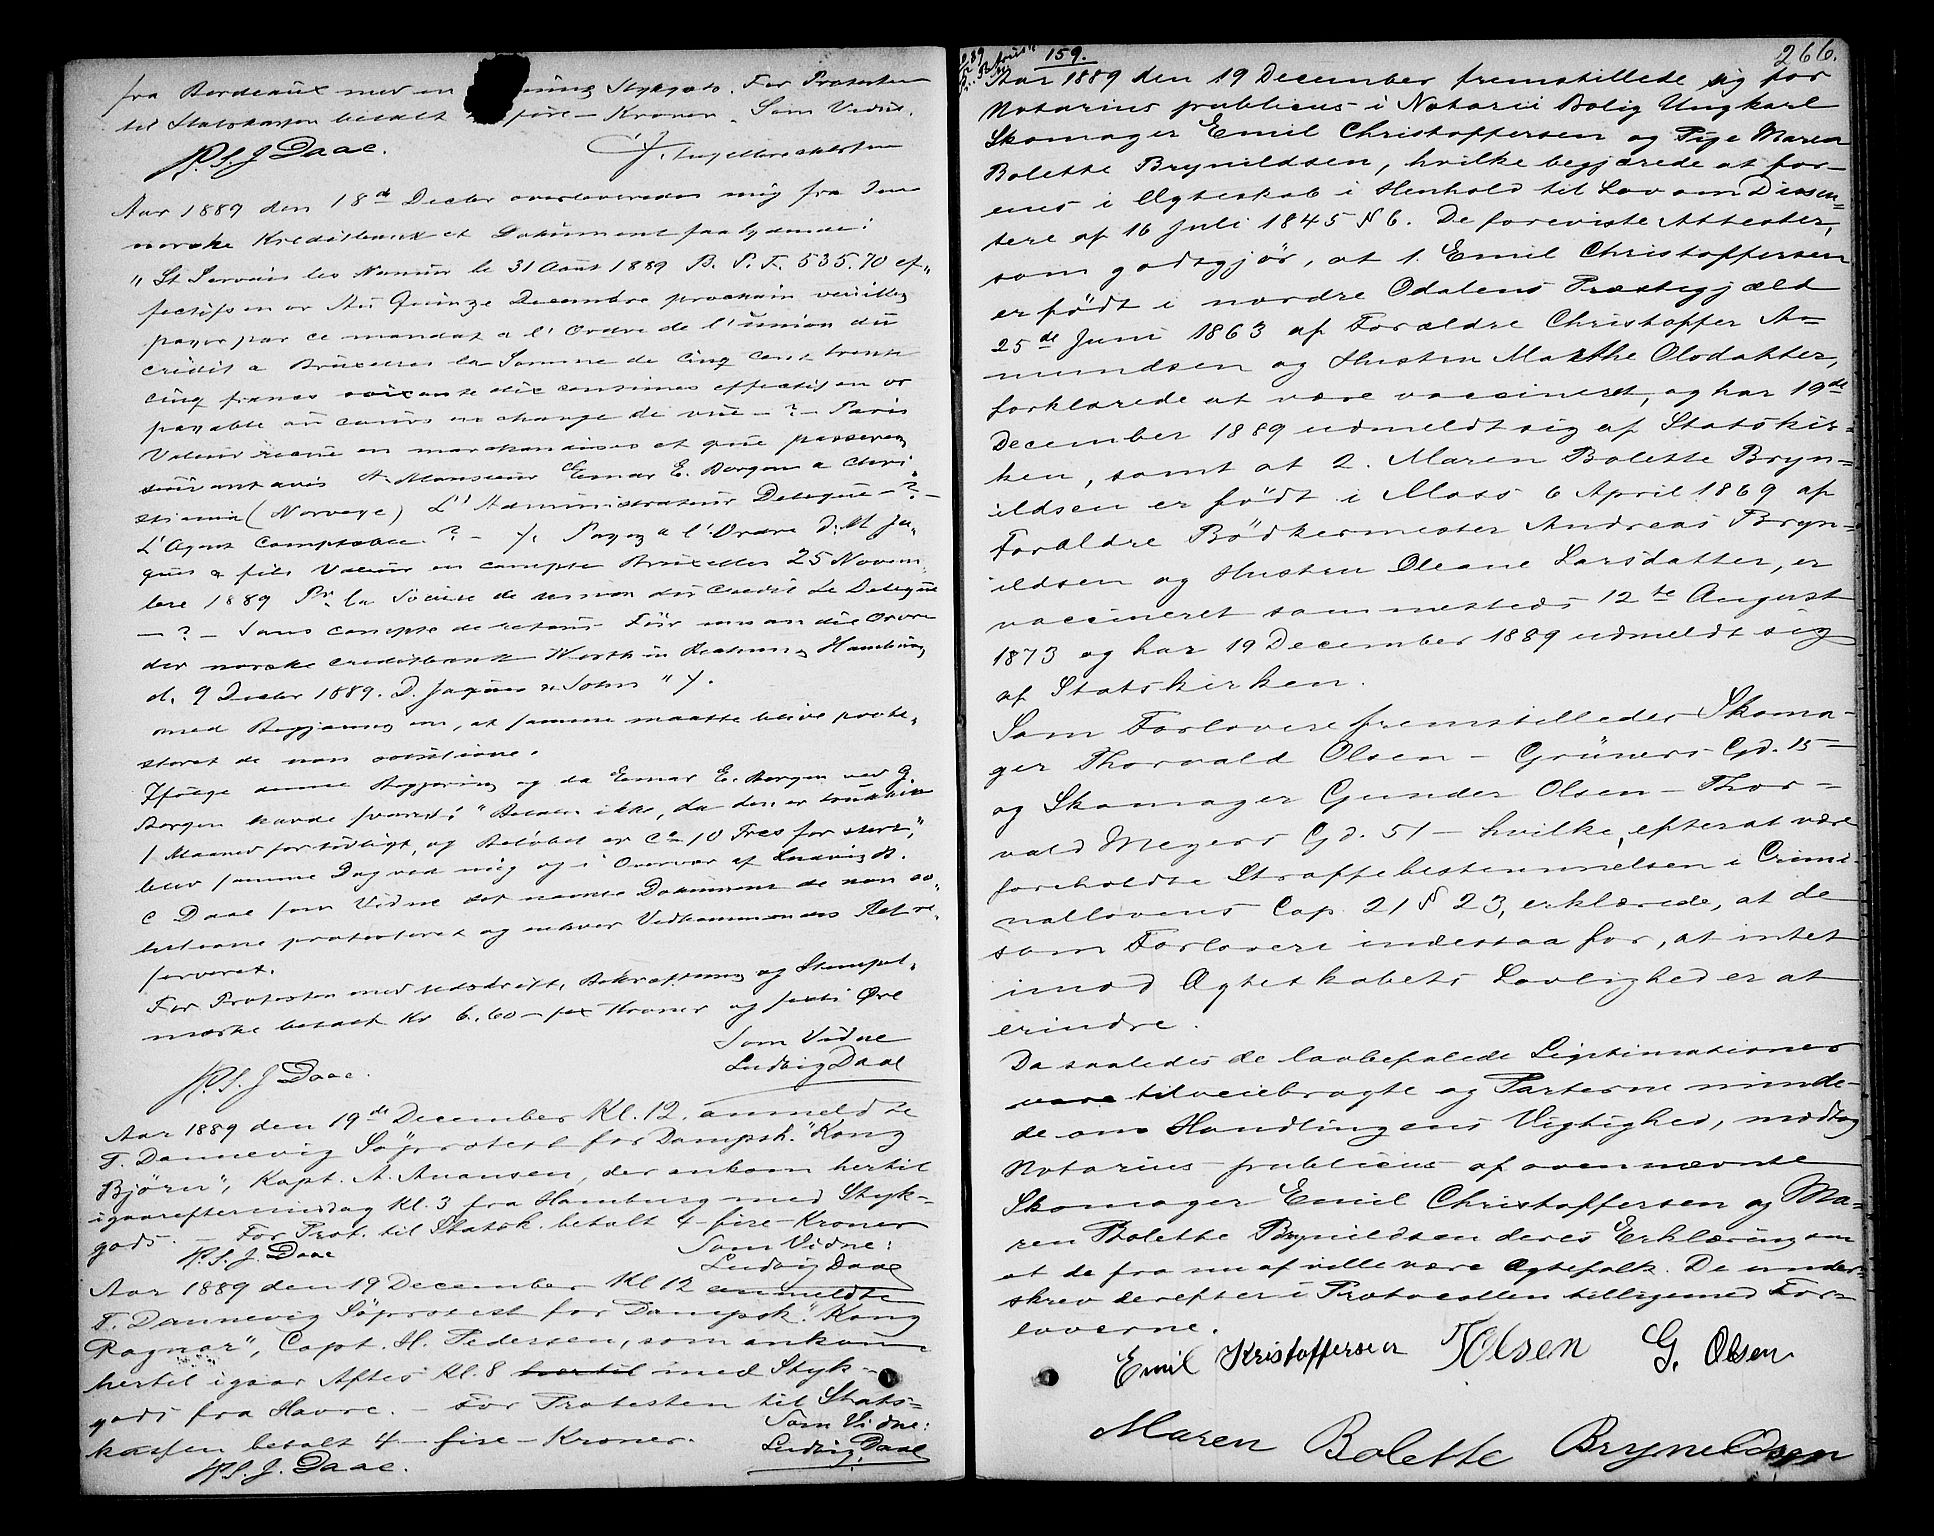 fra Bordeaux med en Stykgods. For Protesten
til Statskassen betalt fire - Kroner. Som Vidne.
N. S. J. Daae.
J. Ingelbrechtsen
Aar 1889 den 18d Decbr overleveredes mig fra den
norske Kreditbank et Dokument saalydende:
"St Servais les Namur le 31 Aout 1889 B. P. F. 535.70 ef„
fectifs en or Au Quinze Decembre prochain veuillez
payer par ce mandat a l'Ordre de l'union du
credit a Bruxelles la Somme de cinq cent trente
cinq francs soixante dix centimes effectif en or
payable au cours en change de vue - ? - Paris
Valeur recue en marchandises et que passerez
suivant avis A Monsieur Einar E. Borgen a Chri„
stiania (Norvege) L'Administrateur Delegue - ? -
L'Agent Comptable ? - /. Payez a l'Ordre D. M Ja„
ques & fils Valeur en compte Bruxelles 25 Novem„
bre 1889 Pr. la Societe de union du Credit Le Delegue
- ? - Sans compte de retour Für uns an die Ordre
der norske Creditbank Werth in Rechnung Hamburg
d. 9 Decbr 1889. D. Jaques & Sohn" /.
med Begjæring om, at samme maatte blive prote„
steret de non solutione.
Ifølge denne Begjæring og da Einar E. Borgen ved G.
Borgen havde svaret: "Betales ikke, da den er trukket
1 Maaned for tidligt, og Beløbet er Ca 10 Frcs for stort",
blev samme Dag ved mig og i Overvær af Ludvig
C Daae som Vidne det nævnte Dokument de non so„
lutione protesteret og enhver Vedkommendes Ret re„
serveret.
For Protesten med Udskrift, Bekræftning og Stempel„
mærke betalt Kr 6.60 - sex Kroner og sexti Øre
Som Vidne
Ludvig Daae
N. S. J Daae.
Aar 1889 den 19de December Kl. 12. anmeldte
T. Dannevig Söprotest for Dampsk. "Kong
Bjørn", Kapt. A. Anansen, der ankom hertil
igaareftermiddag Kl. 3 fra Hamburg med Styk-
gods. - For Prot. til Statsk. betalt 4 - fire - Kroner
N. S. J. Daae
Som Vidne:
Ludvig Daae
Aar 1889 den 19 December Kl 12 anmeldte
T. Dannevig Söprotest for Dampsk. "Kong
Ragnar", Capt. H. Pedersen, som ankom
hertil igaar Aftes Kl. 8 hertil med Styk-
gods fra Havre. - For Protesten til Stats=
kassen betalt 4 - fire - Kroner.
Som Vidne:
Ludvig Daae
N. S. J. Daae.
159.
266.
Aar 1889 den 19 December fremstillede sig for
Notarius publicus i Notarii Bolig Ungkarl
Skomager Emil Christoffersen og Pige Maren
Bolette Brynildsen, hvilke begjærede at for-
enes i Ægteskab i Henhold til Lov om Dissen=
tere af 16 Juli 1845 § 6. De foreviste Attester,
som godtgjør, at 1. Emil Christoffersen
er født i nordre Odalens Præstegjæld
25de Juni 1863 af Forældre Christoffer A=
mundsen og Hustru Marthe Olsdatter,
forklarede at være vaccineret, og har 19de
December 1889 udmeldt sig af Statskir=
ken, samt at 2. Maren Bolette Bryn=
ildsen er født i Moss 6 April 1869 af
Forældre Bödkermester Andreas Bryn=
ildsen og Hustru Oleane Larsdatter, er
vaccineret sammesteds 12te August
1873 og har 19 December 1889 udmeldt sig
af Statskirken.
Som Forlovere fremstilledes Skoma-
ger Thorvald Olsen - Grüners Gd. 15 -
og Skomager Gunder Olsen - Thor-
vald Meyers Gd. 51 - hvilke, efter at være
foreholdte Straffebestemmelsen i Crimi-
nallovens Cap. 21 § 23, erklærede, at de
som Forlovere indestaa for, at intet
imod Ægteskabets Lovlighed er at
erindre.
Da saaledes de lovbefalede Legitimationer
vare tilveiebragte og Parterne minde-
de om Handlingens Vigtighed, modtog
Notarius publicus af ovennævnte
Skomager Emil Christoffersen og Ma-
ren Bolette Brynildsen deres Erklæring om
at de fra nu af ville være Ægtefolk. De under-
skrev derefter i Protocollen tilligemed For-
loverne.
Emil Kristoffersen TOlsen G. Olsen
Maren Bolette Bryneldsen